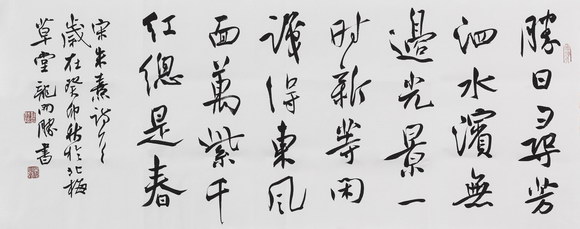 勝日尋芳
泗水濱無
邊光景一
时新等閑
識得東风
面萬紫千
红總是春
宋朱熹詩
歲在癸卯秋於北梅
草堂龍開勝書